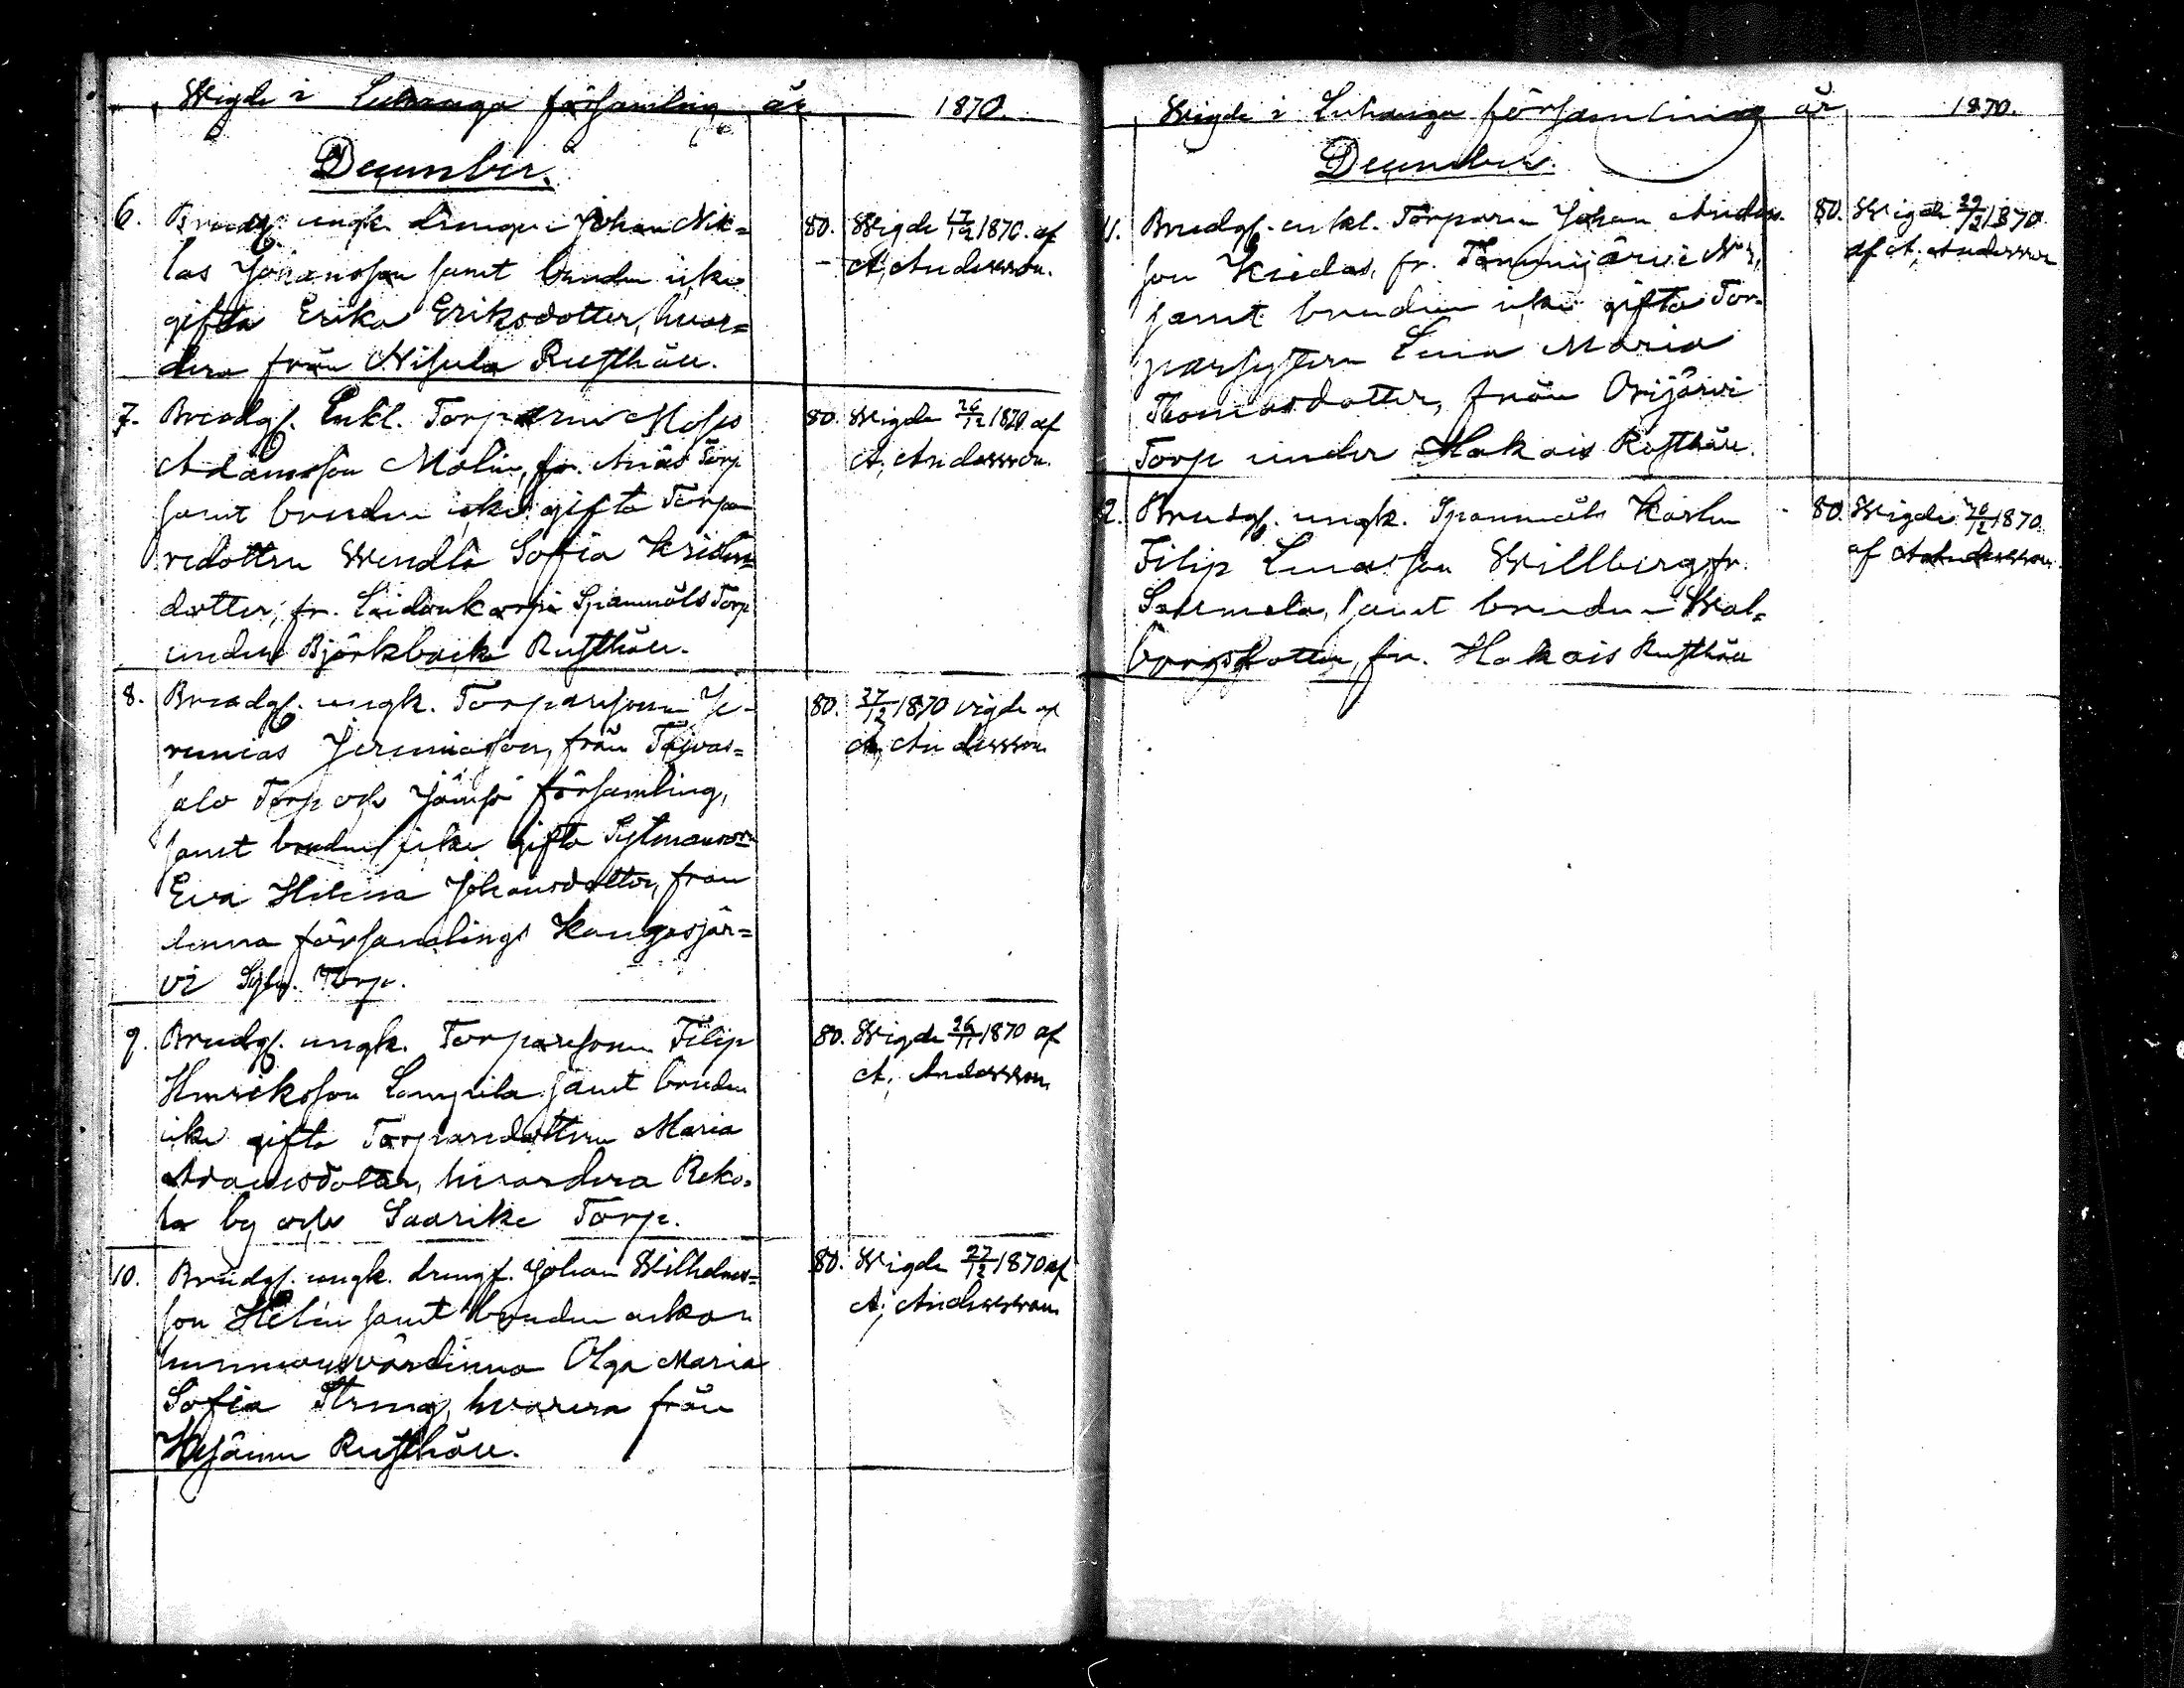 Wigde i Luhanga församling år 1870.
December.
6. Brudg. ungk. drengen Johan Nik=
las Johansson samt bruden icke
gifta Erika Eriksdotter, hvar=
dera från Nisula Rusthåll.
80. Wigde 17/12 1870. af
A. Andersson.
7. Brudg. Enkl. Torparen Moses
Adamsson Molin, fr. Torp
samt bruden icke gifta Torpa
redottren Wendla Sofia
dotter, fr. Spannmåls Torp
under Björkbacka Rusthåll.
80. Wigde 26/12 1870 af
A. Andersson.
8. Brudg. ungk. Torparesonen Je-
remias Jeremiasson, från Taivas=
alo Torp och Jämsä församling,
samt bruden icke gifta
Eva Helena Johansdotter, från
denna församlings Kangasjär=
vi Torp.
80. 27/12 1870 vigde af
A. Andersson
9. Brudg. ungk. Torparesonen Filip
Henriksson Lampila samt bruden
icke gifta Torparedottren Maria
Adamsdotter, hvardera Reko=
la by och Saarike Torp.
80. Wigde 26/11 1870 af
A. Andersson
10. Brudg. ungk. drengs. Johan Wilhelms=
son Helin samt bruden enkan
Olga Maria
Sofia från
Rusthåll.
80. Wigde 27/12 1870 af
A. Andersson
Wigde i Luhanga församling år 1870.
December.
11. Brudg. enkl. Torparen Johan Anders=
son fr. Tammijärvi N 2,
samt bruden icke gifta Tor=
parsystern Lena Maria
Thomasdotter, från Orijärvi
Torp under Hakais Rusthåll.
80. Wigde 29/12 1870.
af A. Andersson
12. Brudg. ungk. Spannmåls Karlen
Filip Enasson Willberg, fr.
samt bruden Wal=
borgsdotter, fr. Hakais Rusthåll
80. Wigde 26/12 1870.
af A Andersson.